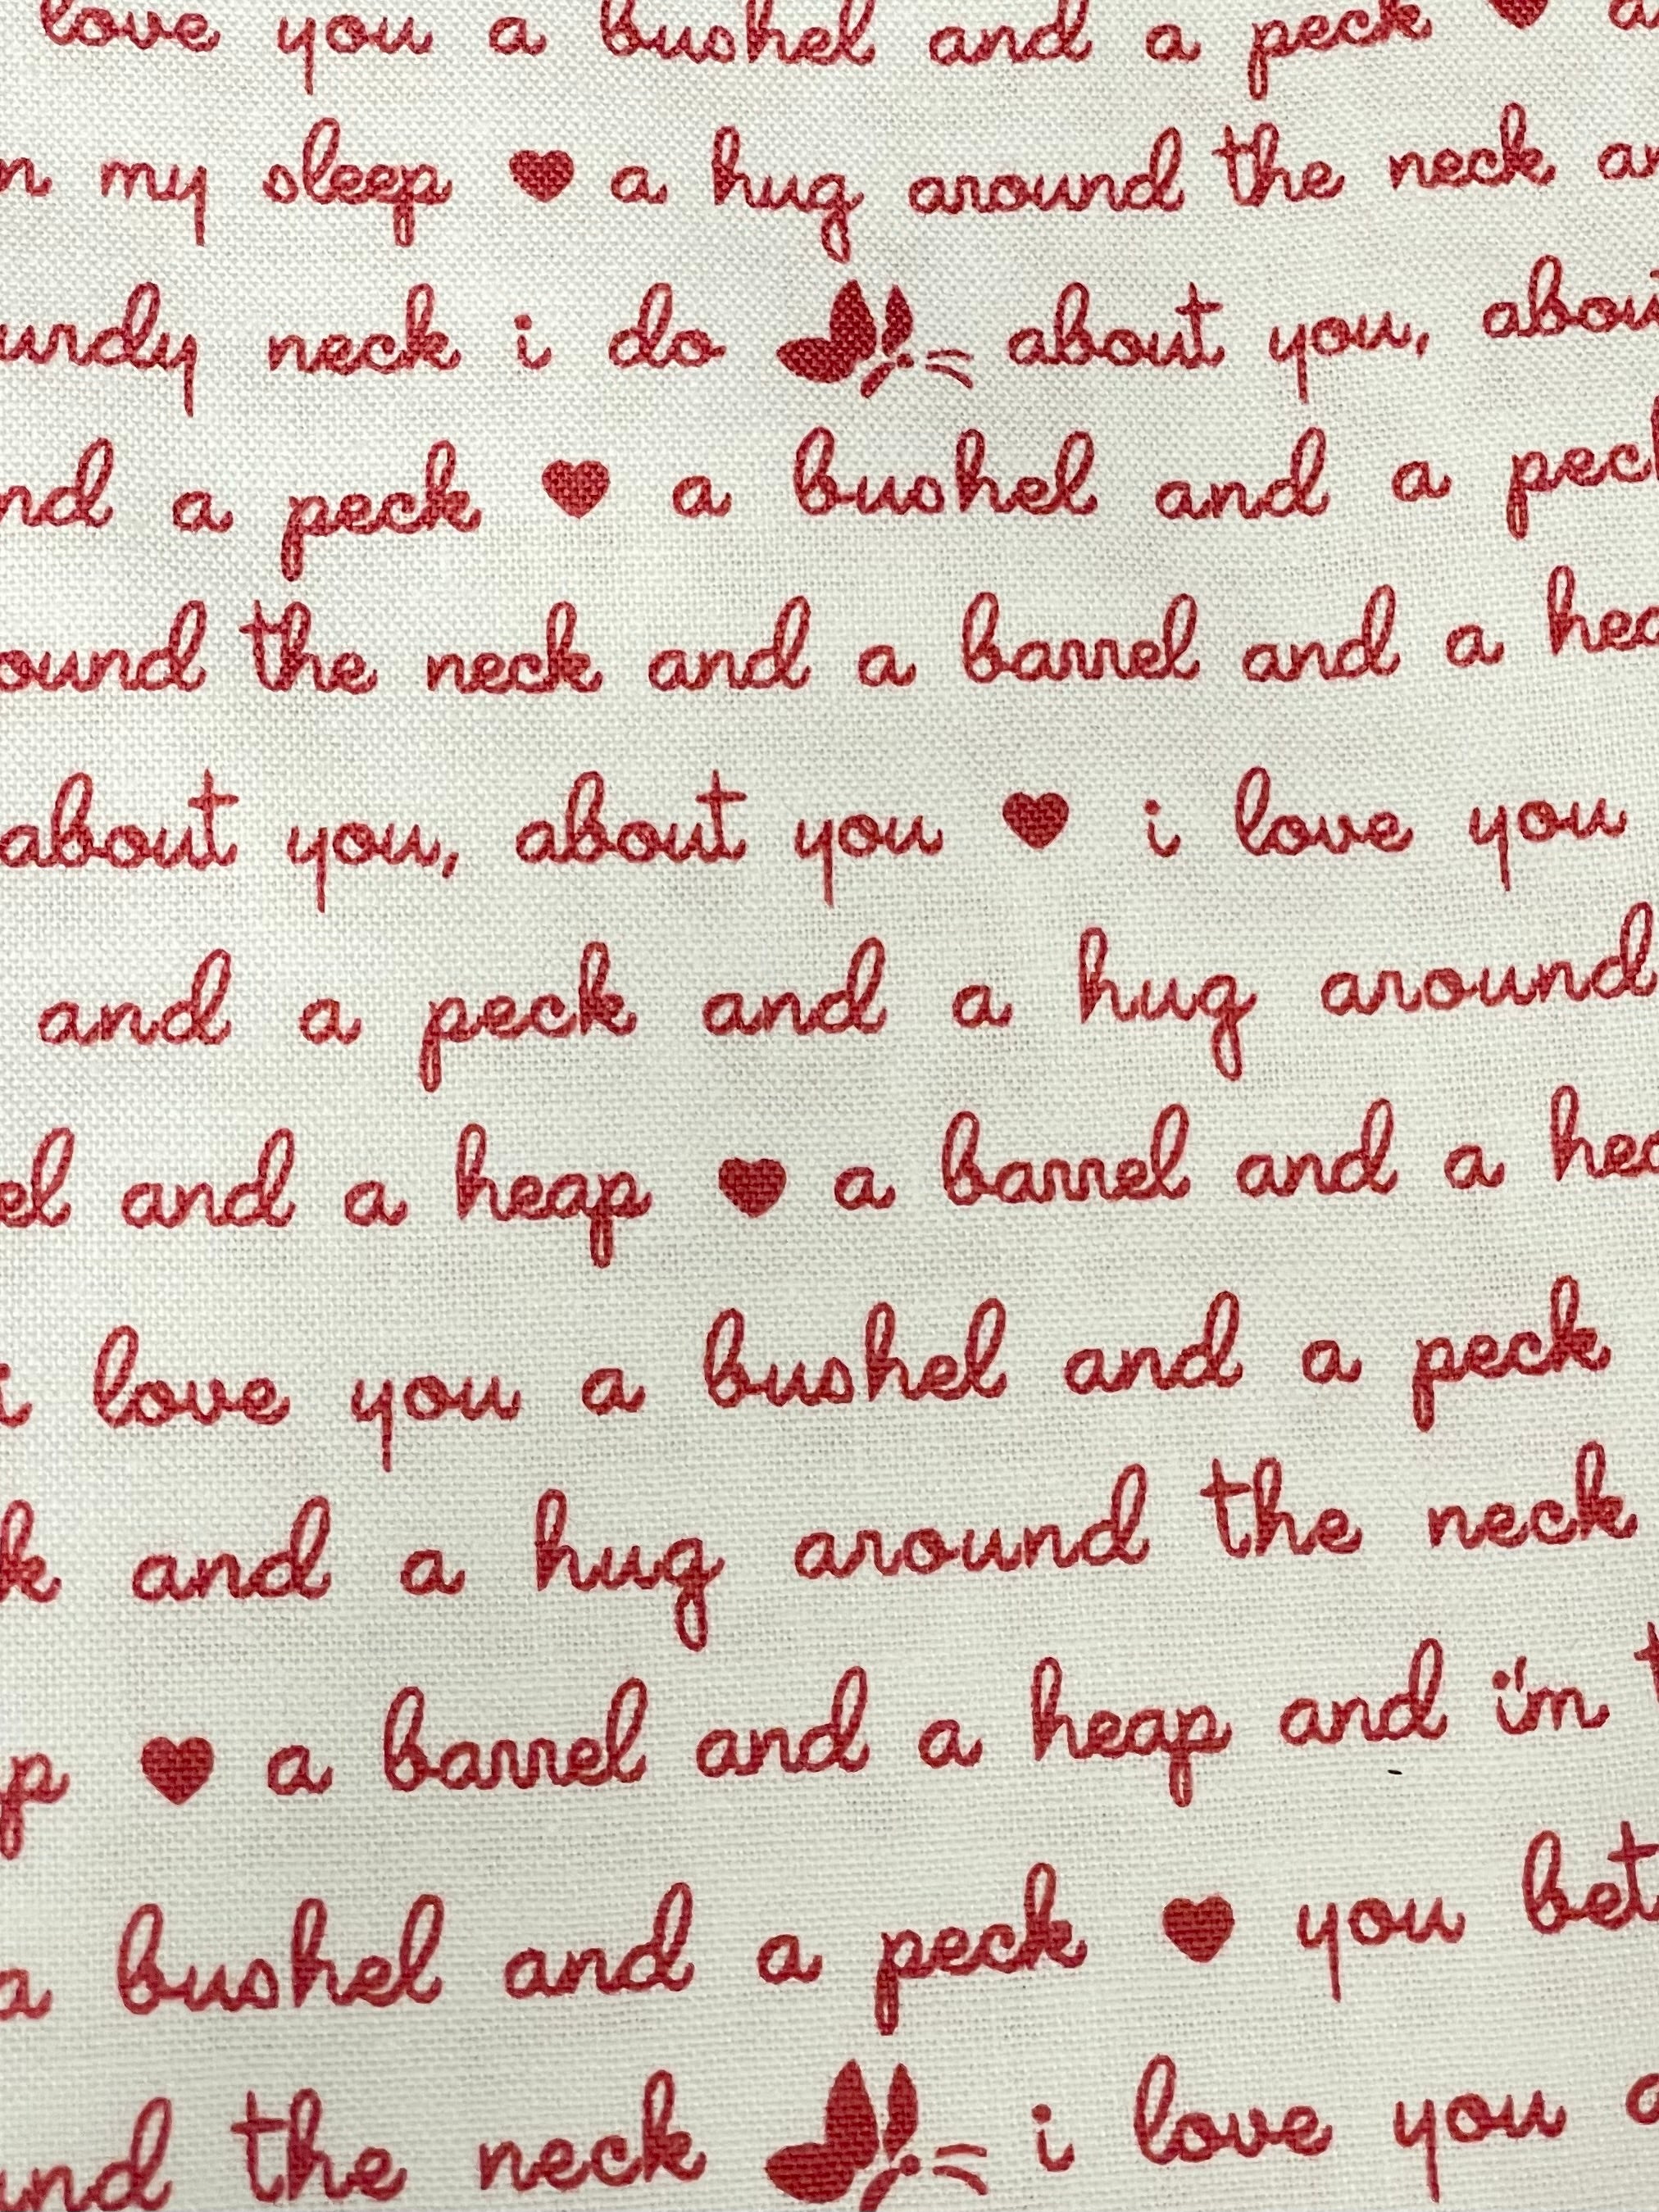 love you a bushel and a peck
my sleep a hug around the neck
neck i do about you,
a peck a bushel and a
the neck and a barrel and a
about you, about you i love you
and a peck and a hug around
and a heap a barrel and a
love you a bushel and a peck
and a hug around the neck
a barrel and a heap and i'm
a bushel and a peck you
the neck i love you